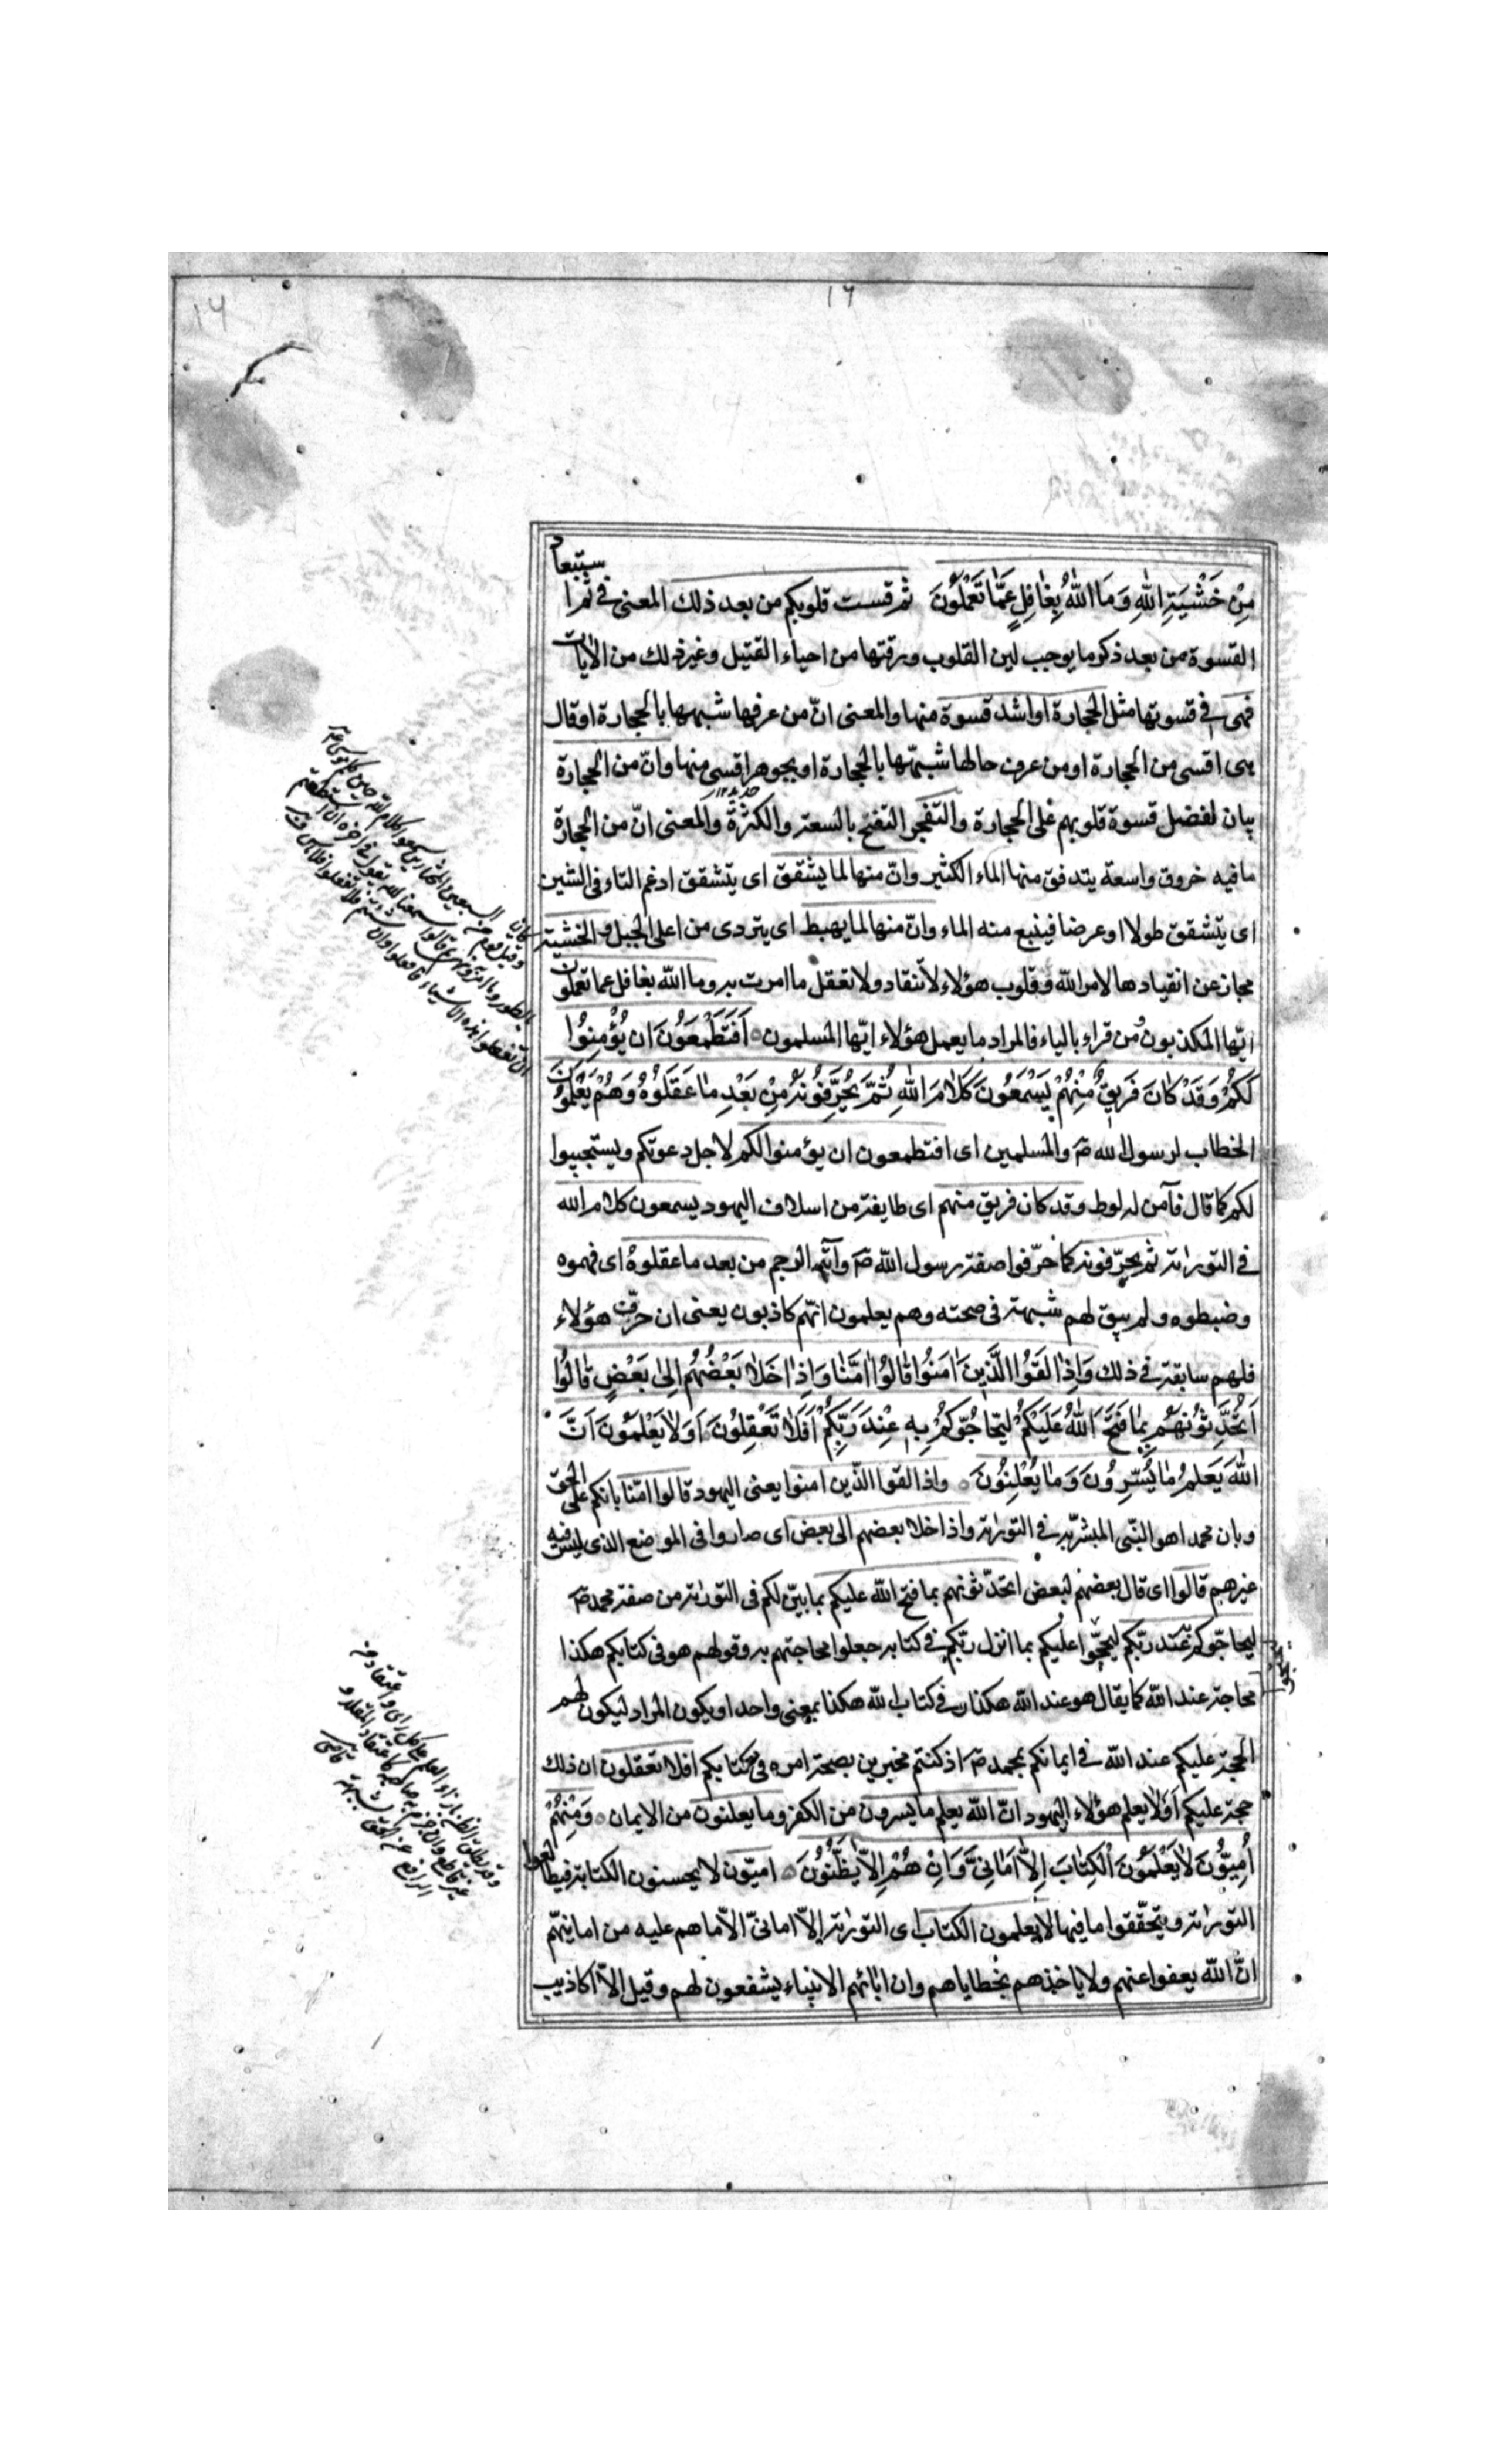 ١٦
١٦
مِنْ خَشْيَةِ اللهِ وَمَا اللهُ بِغَافِلٍ عَمَّا تَعْمَلُونَ ثم قست قلوبكم من بعد ذلك المعنى في ثم استبعاد
القسوة من بعد ذكر ما يوجب لين القلوب ورقتها من احياء القتيل وغير ذلك من الايات
فهى في قسوتها مثل الحجارة او اشد قسوة منها والمعنى انّ من عرفها شبهها بالحجارة او قال
هى اقسى من الحجارة او من عرف حالها شبّهها بالحجارة او بجوهر اقسى منها وانّ من الحجارة
بيان لفضل قسوة قلوبهم على الحجارة والتفجر التفتح بالسعة والكثرة والمعنى انّ من الحجارة
ما فيه خروق واسعة يتدفق منها الماء الكثير وانّ منها لما يشقق اى يتشقق ادغم التاء فى الشين
اى يتشقق طولا او عرضا فينبع منه الماء وانّ منها لما يهبط اى يتردى من اعلى الجبل والخشية
مجاز عن انقيادها لامر الله وقلوب هؤلاء لا تنقاد ولا تعقل ما امرت به وما الله بغافل عما تعملون
ايّها المكذبون ومن قراء بالياء فالمراد ما يعمل هؤلاء ايّها المسلمون اَفَتَطْمَعُونَ اَن يُؤْمِنُوا
لَكُمْ وَقَدْ كَانَ فَرِيقٌ مِنْهُمْ يَسْمَعُونَ كَلَامَ اللهِ ثُمَّ يُحَرِّفُونَهُ مِنْ بَعْدِ مَا عَقَلُوهُ وَهُمْ يَعْلَمُونَ
الخطاب لرسول الله ص والمسلمين اى افتطمعون ان يؤمنوا لكم لاجل دعوتكم ويستجيبوا
لكم كما قال فآمن له لوط وقد كان فريق منهم اى طايفة من اسلاف اليهود يسمعون كلام الله
في التورٰية ثم يحرّفونه كما حرّفوا صفة رسول الله ص وآية الرجم من بعد ما عقلوه اى فهموه
وضبطوه ولم يبق لهم شبهة فى صحته وهم يعلمون انّهم كاذبون يعنى ان حرّف هؤلاء
فلهم سابقة في ذلك وَاِذَا لَقُوا الَّذِينَ اٰمَنُوا قَالُوا اٰمَنَّا وَاِذَا خَلَا بَعْضُهُمْ اِلَى بَعْضٍ قَالُوا
اَتُحَدِّثُونَهُمْ بِمَا فَتَحَ اللهُ عَلَيْكُمْ لِيُحَاجُّوكُمْ بِهِ عِنْدَ رَبِّكُمْ اَفَلَا تَعْقِلُونَ اَوَلَا يَعْلَمُونَ اَنَّ
اللهَ يَعْلَمُ مَا يُسِرُّونَ وَمَا يُعْلِنُونَ واذا لقوا الذّين امنوا يعنى اليهود قالوا امنّا بانكم على الحق
وبان محمدا هو النّبى المبشّر به في التورٰية واذا خلا بعضهم الى بعض اى صاروا فى الموضع الذى ليس فيه
غيرهم قالوا اى قال بعضهم لبعض اتحدّثونهم بما فتح الله عليكم بما بيّن لكم فى التورٰية من صفة محمد ص
ليحاجّوكم به عند ربّكم ليحتجّوا عليكم بما انزل ربّكم في كتابه جعلوا محاجتهم به وقولهم هو فى كتابكم هكذا
محاجة عند الله كما يقال هو عند الله هكذا وفى كتاب الله هكذا بمعنى واحد او يكون المراد ليكون لهم
الحجة عليكم عند الله في ايمانكم بمحمد ص اذ كنتم مخبرين بصحة امره فى كتابكم افلا تعقلون ان ذلك
حجة عليكم اَوَلَا يعلم هؤلاء اليهود انّ الله يعلم ما يسرون من الكفر وما يعلنون من الايمان وَمِنْهُمْ
اُمِّيُّونَ لَا يَعْلَمُونَ الْكِتَابَ اِلَّا اَمَانِىَّ وَاِنْ هُمْ اِلَّا يَظُنُّونَ اميّون لا يحسنون الكتابة فيطالعوا
التورٰية ويتحقّقوا ما فيها لا يعلمون الكتاب اى التورٰية الّا امانىّ الّا ما هم عليه من امانيهم
انّ الله يعفوا عنهم ولا ياخذهم بخطاياهم وان ابائهم الانبياء يشفعون لهم وقيل الّا اكاذيب